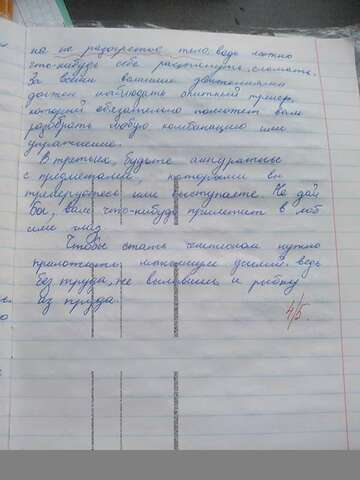 на не разогретое тело, ведь можно
что-нибудь себе растянуть, сломать.
За всеми вашими движениями
должен наблюдать опытный тренер,
который обязательно поможет вам
разобрать любую комбинацию или
упражнение.
В третьих, будьте аккуратные
с предметами, которыми вы
тренируетесь или выступаете. Не дай
Бог, вам что-нибудь прилетит в лоб
или глаз.
Чтобы стать чемпионом нужно
приложить максимум усилий, ведь
без труда, не выловишь и рыбку
из пруда.
4/5.